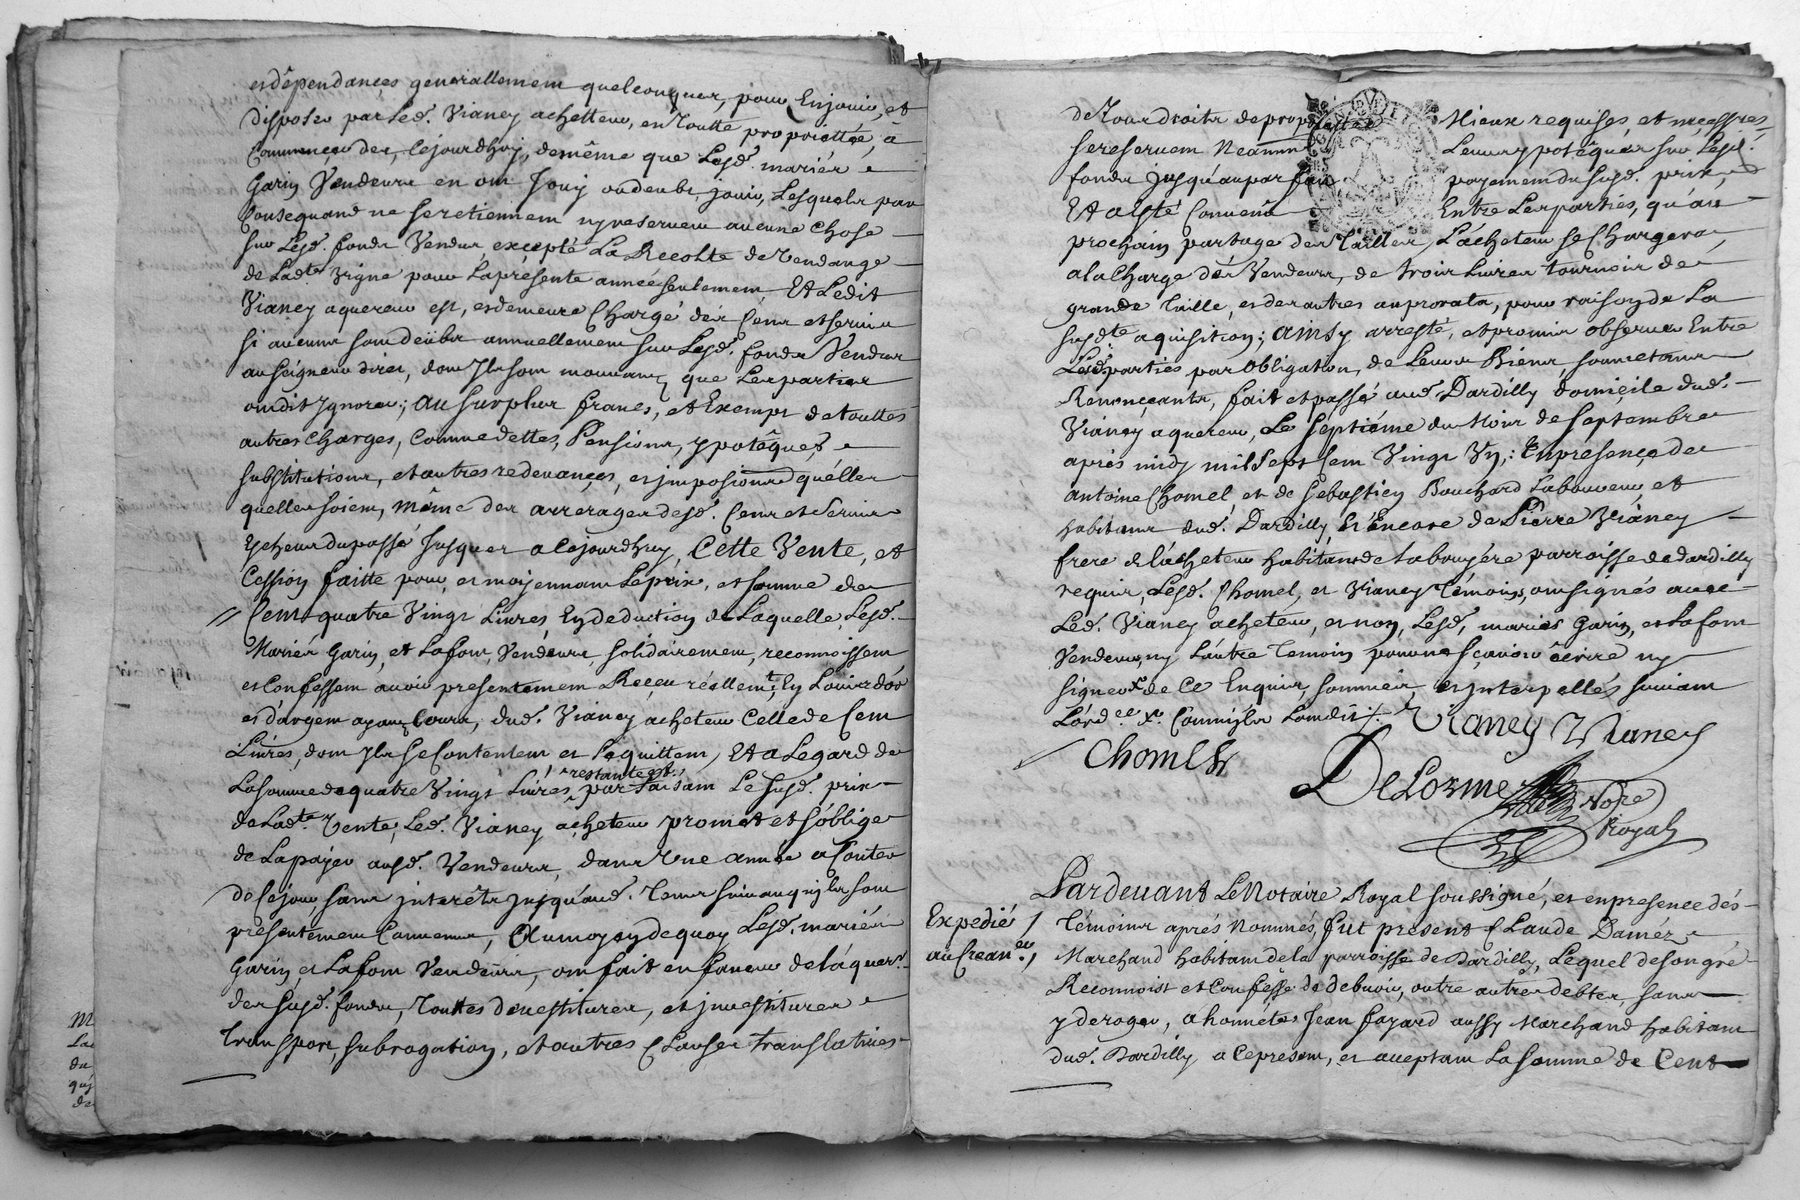 et dépendances generallement quelconques, pour En jouir, et
disposer par Led. Vianey achetteur, en Toutte proprietté, a
Commencer des, cejourdhuy, de même que Lesd. mariés
Garin Vendeurs en ont Jouy ou deubt jouir, Lesquels par
Consequand ne se retiennent ny reservent aucune chose
sur Lesd. fonds Vendus excepté La Recolte de Vendange
de Ladte. vigne pour La présente année seulement, Et Ledit
Vianey aquereur est, et demeure Chargé dés Cens et servis
si aucuns sont deübs annuellement sur Lesd. fonds Vendus
au seigneur direct, dont Ils sont mouvans, que Les parties
ont dit Ignorer; au surplus francs, et Exempt de touttes
autres Charges, Comme dettes, Pensions, ypotêques,
substitutions, et autres redevances, et jmposions quélles
quelles soient, même des arrerages desd. Cens et Servis
Echeus du passé Jusques a Cejourdhuy, Cette Vente, et
Cession faitte pour, et moÿennant Le prix, et somme de
Cent quatre Vingt Livres, En deduction de Laquelle Lesd.
Mariés Garin, et Lafont, Vendeurs, solidairement, reconnoissent
et Confessent avoir presentement Reçeu réellemt. En Loüis dór
et dárgent ayant Cours, dud. Vianey acheteur Celle de Cent
Livres, dont Ils se Contentent et L'equittent, Et a Legard de
La somme de quatre Vingt Livres restante et parfaisant Le susd. prix
de Ladte. Vente, Led. Vianey acheteur promet et sóblige
de La païer ausd. Vendeurs, dans Une année a Conter
de Ce jour sans jnterêts jusquáud. Tems suivant qu'ils sont
présentement Convenus, Au moyen de quoy Lesd. mariés
Garin et Lafont Vendeurs, ont fait en faveur de láquer.
des susd. fonds, Touttes devestitures, et jnvestitures
Transport, subrogation, et autres Clauses translatives
de Tous droits de proprieté Mieux requises, et necessres.
se reservent Neanm Leur ypotêque sur Lesd.
fonds Jusquáu parfait payement du susd. prix,
Et a esté Convenu Entre Les parties, qu'au
prochain partage des Tailles, Lácheteur se Chargera,
a la Charge dés Vendeurs, de trois Livres tournois de
grande Taille, et des autres au prorata, pour raison de La
susdte. aquisition; Ainsy arresté, et promis observer Entre
Lesd. parties par obligation, de Leurs Biens, soumettans
Renonçcants, fait et passé aud. Dardilly domicile dud.
Vianey aquereur, Le septiéme du Mois de septembre
aprés midy mil Sept Cent Vingt Un; En presençe de
antoine Chomel, et de Sebastien Bouchard Laboureurs, et
habitans dud. Dardilly, et Encore de Piêrre Vianey
frere de lácheteur habitant de Labruyére parroisse de dardilly
requis, Lesd. Chomel, et Vianey Témoins, ont signés avec
Led. Vianey acheteur, et non, Lesd. mariés Garin, et Lafont
Vendeurs, ny Láutre Temoin pour ne sçavoir écrire ny
signer de Ce Enquis, sommés, et jnterpellés suivant
Lórd.ce
Vianey Vianey
Chomel
DeLorme
Nore
Royal
Pardevant Le Notaire Royal soussigné, et en presence dés
Expediés
au Crean.er
Témoins aprés Nommés, fut present Claude Daméz
Marchand habitant de la parroisse de Dardilly, Lequel de son gré
Reconnoist et Confesse de debvoir, outre autres debtes, sans
y deroger, a honnéte Jean fayard aussy Marchand habitant
dud. Dardilly a Ce present, et aceptant La somme de Cent